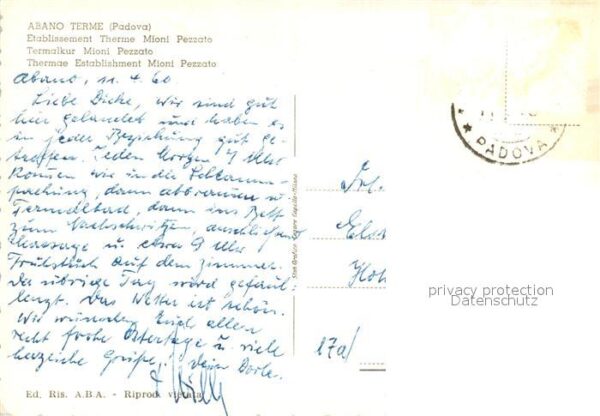 ABANO TERME (Padova)
Etablissement Therme Mioni Pezzato
Termalkur Mioni Pezzato
Thermae Establishment Mioni Pezzato
Abano, 11.4.60
Liebe Dicke, wir sind gut
hier gelandet und haben es
in jeder Beziehung gut ge-
troffen. Jeden Morgen 7 Uhr
kommen wir in die Schlamm-
packung, dann abbrausen u.
Termalbad, dann ins Bett
zum Nachschwitzen, anschließend
Massage u. etwa 9 Uhr
Frühstück auf dem Zimmer.
Der übrige Tag wird gefaul-
lenzt. Das Wetter ist schön.
Wir wünschen Euch allen
recht frohe Ostertage u. viele
herzliche Grüße, Deine Dorle.
Willy
Ed. Ris. A.B.A. - Riprod. vietata
PADOVA
Frl.
Hot
17a/
privacy protection
Datenschutz